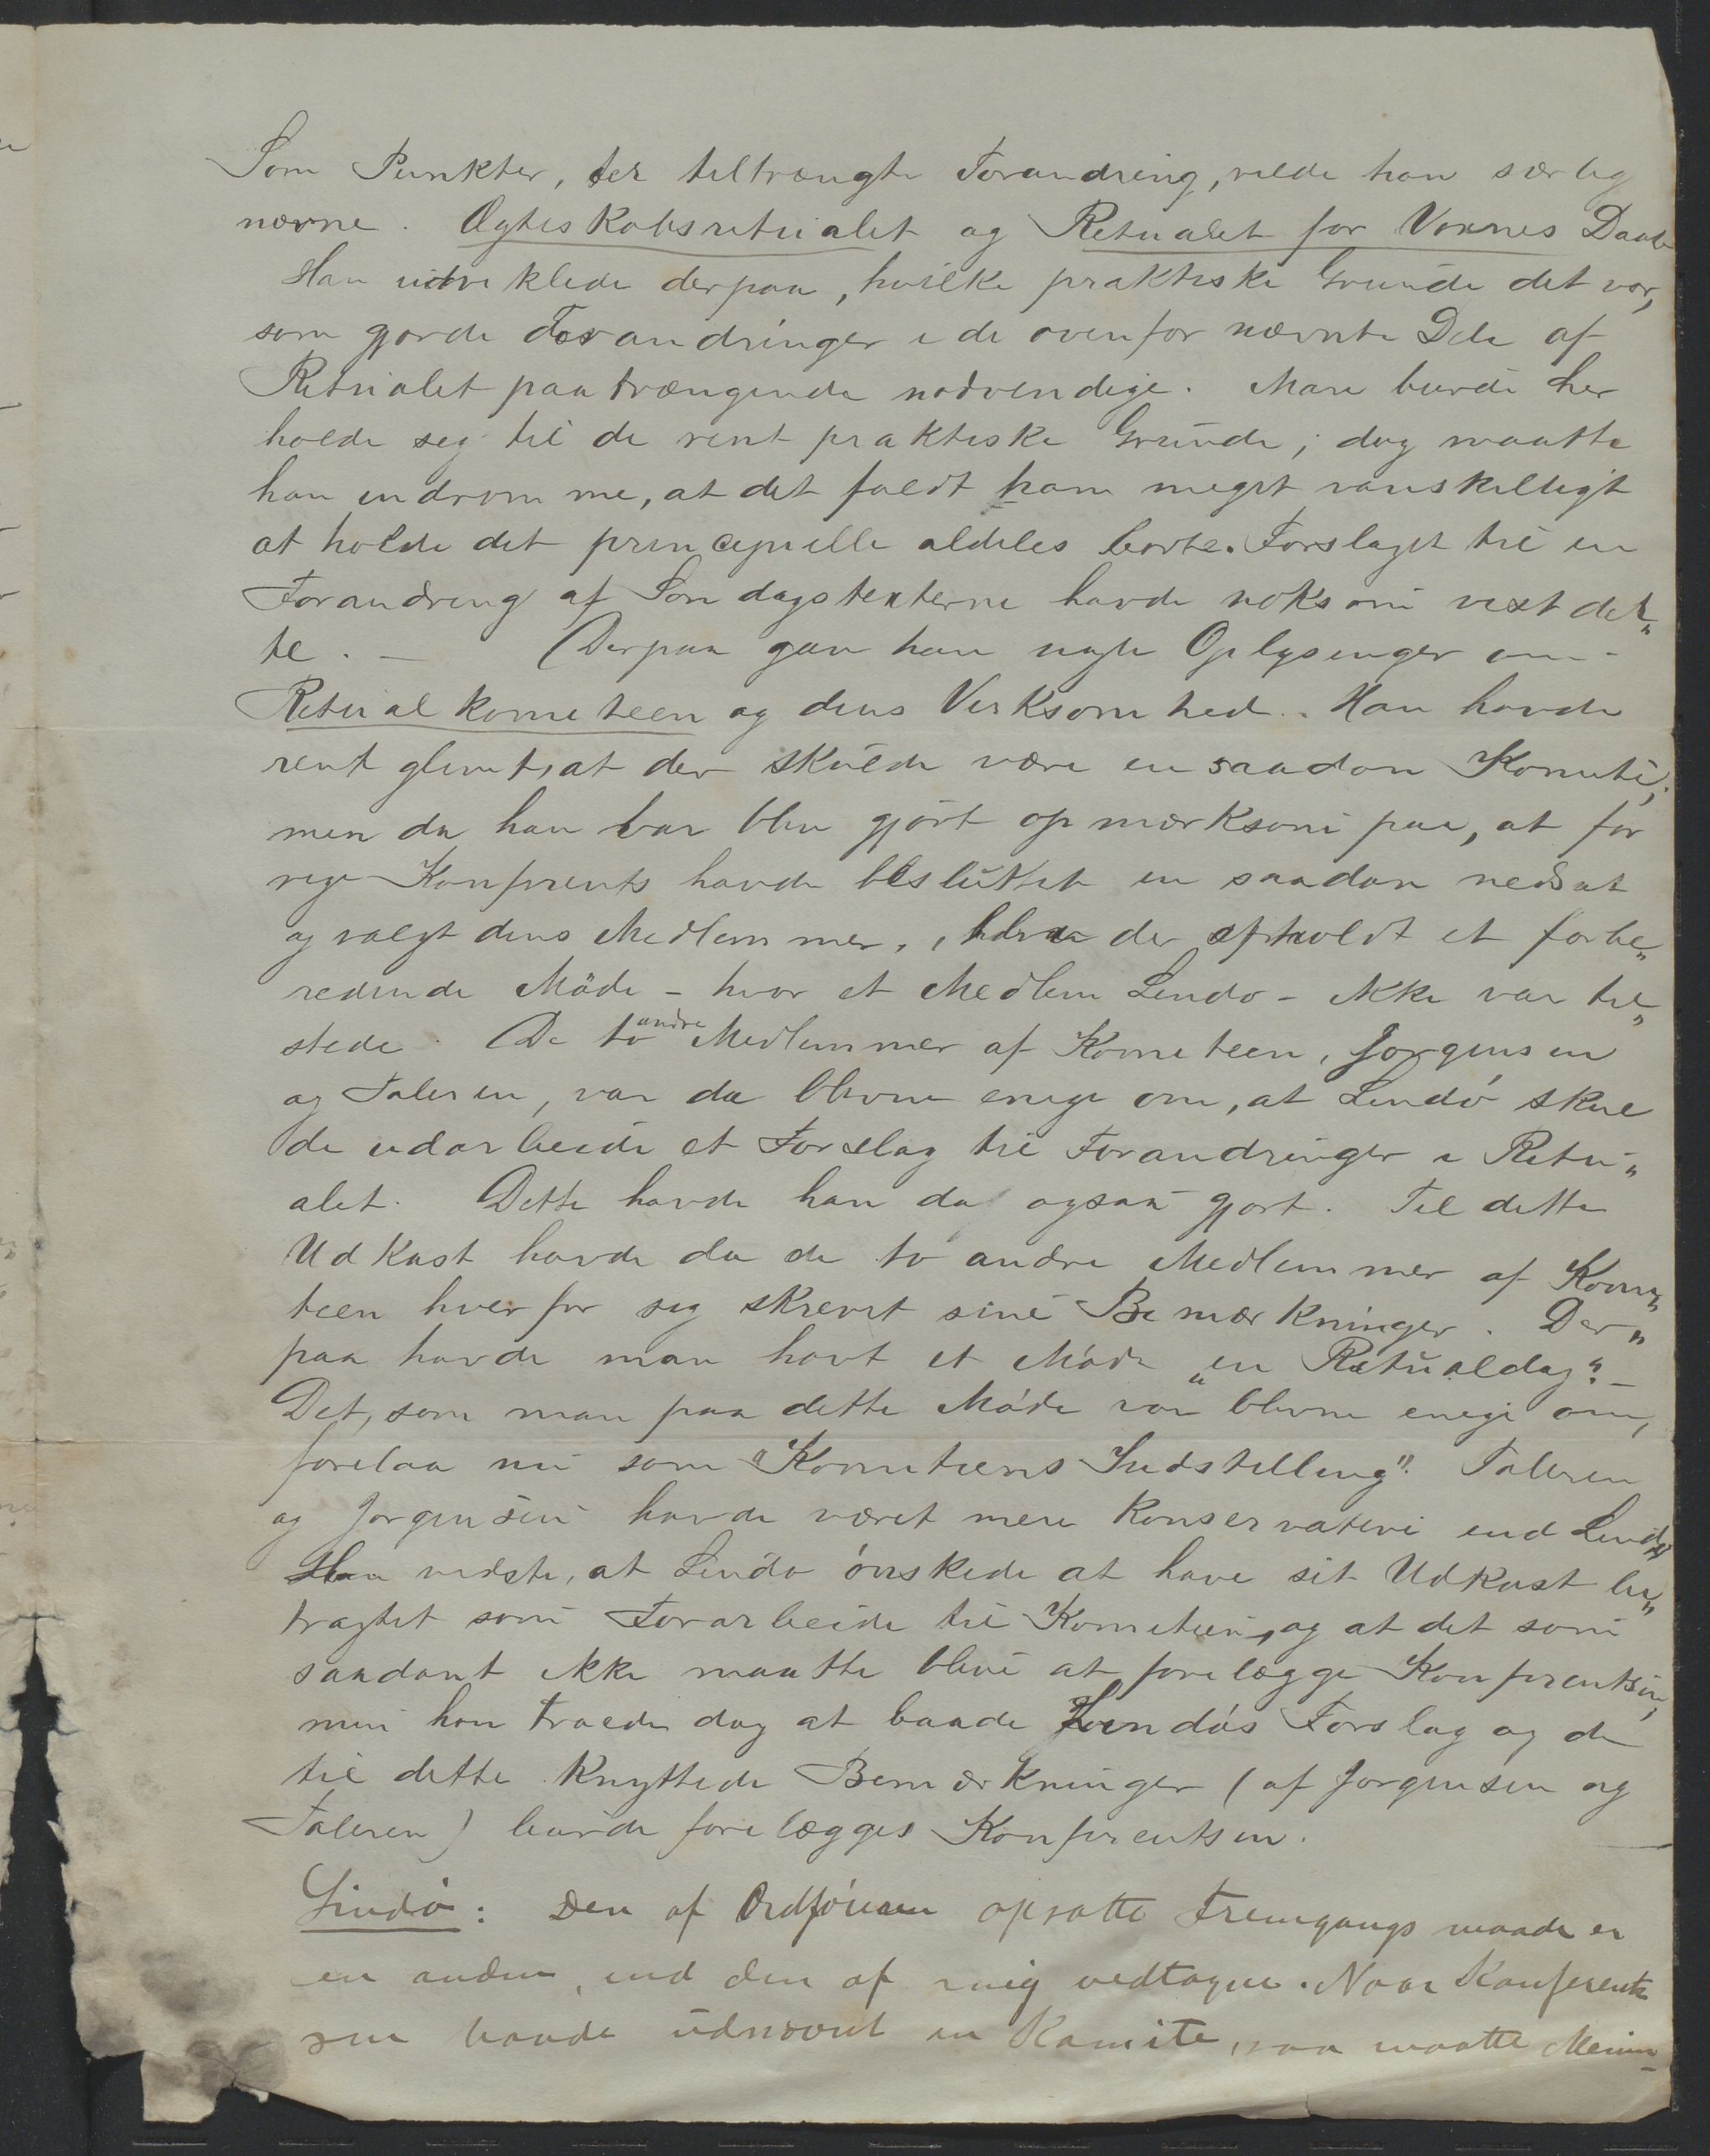 Som Punkter, der tiltrængte Forandring, vilde han særlig
nævne. Ægteskabsritualet og Ritualet for Voxnes Daab
Han udviklede derpaa, hvilke praktiske Grunde det var,
som gjorde Forandringer i de ovenfor nævnte Dele af
Ritualet paatrængende nødvendige. Man burde her
holde sig til de rent praktiske Grunde; dog maatte
han indrømme, at det faldt ham meget vanskelligt
at holde det principielle aldeles borte. Forslaget til en
Forandring af Søndagstexterne havde noksom vist det„
te. — Derpaa gav han nogle Oplysninger om
Ritualkomiteen og dens Virksomhed. Han havde
rent glemt, at der skulde være en saadan Komite,
men da han var blev gjort opmærksom paa, at for
rige Konferents havde besluttet en saadan nedsat
og valgt dens Medlemmer, der afholdt et forbe„
redende Møde – hvor et Medlem Lindø – ikke var til„
stede. De to andre Medlemmer af Komiteen, Jørgensen
og Taleren, var da blevne enige om, at Lindø skul
de udarbeide et Forslag til Forandringer i Ritu„
alet. Dette havde han da ogsaa gjort. Til dette
Udkast havde da de to andre Medlemmer af Komi„
teen hver for sig skrevet sine Bemærkninger. Der„
paa havde man havt et Møde „en Ritualdag“. –
Det, som man paa dette Møde var blevne enige om,
forelaa nu som "Komiteens Indstilling". Taleren
og Jørgensen havde været mere konservative end Lindø
Han vidste, at Lindø ønskede at have sit Udkast be„
tragtet som Forarbeide til Komiteen, og at det som
saadant ikke maatte blive at forelægge Konferentsen,
men han troede dog at baade Lindøs Forslag og de
til dette knyttede Bemærkninger (af Jørgensen og
Taleren) burde forelægges Konferentsen.
Lindø: Den af Ordføreren opsatte Fremgangsmaade er
en anden, end den af mig vedtagne. Naar Konferents
sen havde udnævnt en Komite, saa maatte Menin–